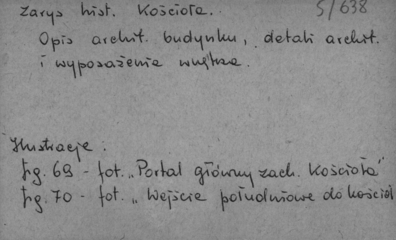 Zarys hist. Kościoła. 5/638
Opis archit. budynku, detali archit.
i wyposażenia wnętrza.
Ilustracje:
Fig. 69 - fot. „Portal główny zach. Kościoła"
Fig. 70 - fot. „Wejście południowe do kościoł